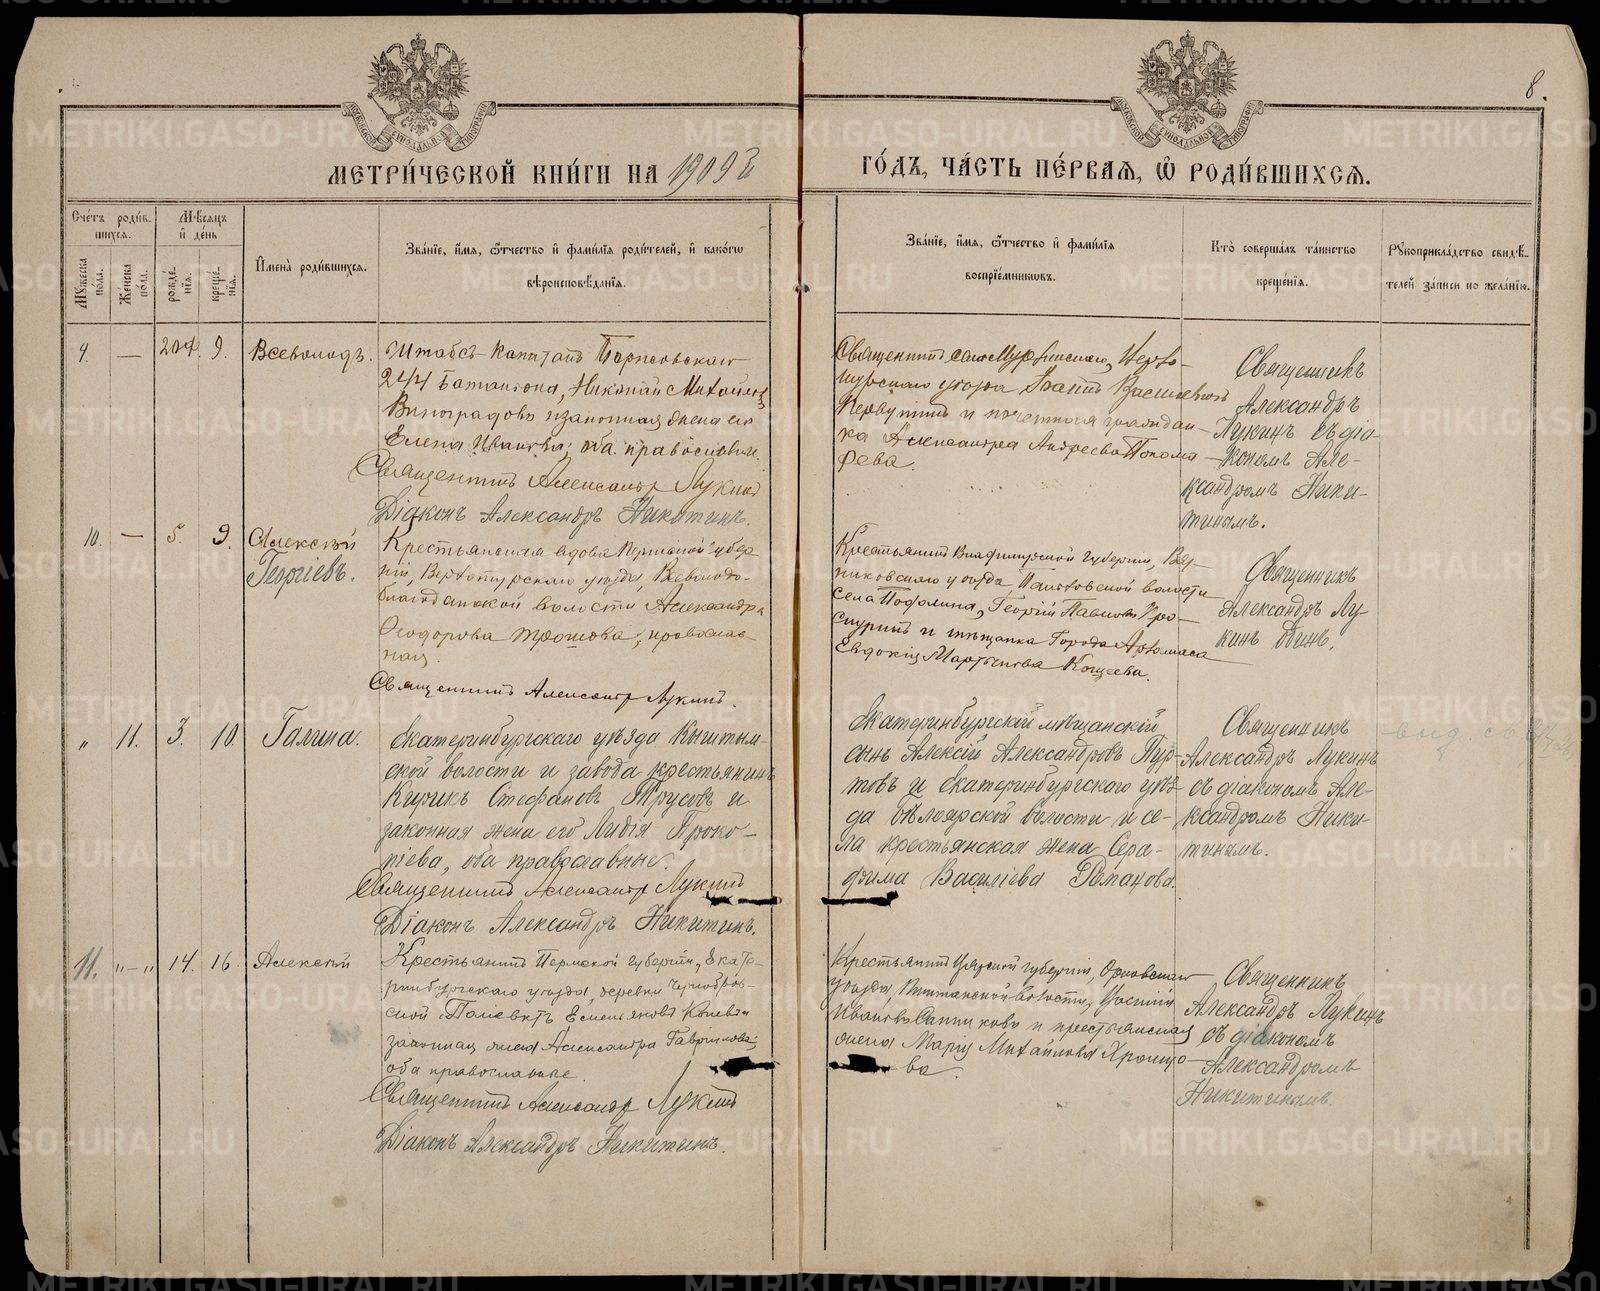 8.
МЕТРИ́ЧЕСКОЙ КНИ́ГИ НА 1909й
ГО́ДЪ, ЧА́СТЬ ПЕ́РВАѦ, Ѡ҆ РОДИ́ВШИХСѦ.
Сче́тъ роди́вшихсѧ.
Мꙋжеска по́ла.
Же́нска по́ла.
Мѣ́сѧцъ и҆ де́нь
рожде́нїѧ.
креще́нїѧ.
И҆мена̀ роди́вшихсѧ.
Зва́нїе, и҆́мѧ, ѻ҆́тчество и҆ фами́лїѧ роди́телей, и҆ како́гѡ
вѣроисповѣ́данїѧ.
Зва́нїе, и҆́мѧ, ѻ҆́тчество и҆ фами́лїѧ
воспрїе́мникѡвъ.
Кто̀ соверша́лъ та́инство
креще́нїѧ.
Рꙋкоприкла́дство свидѣ́-
телей за́писи по жела́нїю.
9.
—
9.
Всеволодъ.
Штабсъ-Капитанъ Борисовскаго
244 Баталіона, Николай Михайловъ
Виноградовъ и законная жена его
Елена Иванова; оба православн.
Священникъ Александръ Лукинъ
Діаконъ Александръ Никитинъ.
Священникъ
Иванъ Васильевичъ
Первушинъ и почетная граждан-
ка Александра Андреева Попома-
рева.
Священникъ
Александръ
Лукинъ съ діа-
кономъ Але-
ксандромъ Ники-
тинымъ.
10.
—
5.
9.
Алексѣй
Георгіевъ.
Крестьянская вдова Пермской губер-
ніи, Верхотурскаго уѣзда, Всеволодо-
благодатской волости, Александра
Ѳеодорова; православ-
ная.
Священникъ Александръ Лукинъ.
Крестьянинъ Владимірской губерніи, Вяз-
никовскаго уѣзда волости
села Георгій Павловъ Про-
скуринъ и мѣщанка Города Арзамаса
Евдокія Мартынова Кощеева.
Священникъ
Александръ Лу-
кинъ одинъ.
"
11.
3.
10.
Галина.
Екатеринбургскаго уѣзда Кыштым-
ской волости и завода крестьянинъ
Кирикъ Стефановъ Трусовъ и
законная жена его Лидія Проко-
піева, оба православные.
Священникъ Александръ Лукинъ
Діаконъ Александръ Никитинъ.
Екатеринбургскій мѣщанскій
сынъ Алексій Александровъ Пур-
товъ и Екатеринбургскаго уѣз-
да Бѣлоярской волости и се-
ла крестьянская жена Сера-
фима Василіева Романова.
Священникъ
Александръ Лукинъ
съ діакономъ Але-
ксандромъ Ники-
тинымъ.
11.
"—"
14.
16.
Алексѣй
Крестьянинъ Пермской губерніи, Екате-
ринбургскаго уѣзда, деревни Чернобров-
ской Емельяновъ и
законная жена Александра Гавріилова;
оба православные.
Священникъ Александръ Лукинъ
Діаконъ Александръ Никитинъ.
Крестьянинъ Вятской губерніи, Орловскаго
уѣзда, волости,
Ивановъ и крестьянская
жена Марія Михайлова Хромцо-
ва.
Священникъ
Александръ Лукинъ
съ діакономъ
Александромъ
Никитинымъ.
METRIKI.GASO-URAL.RU